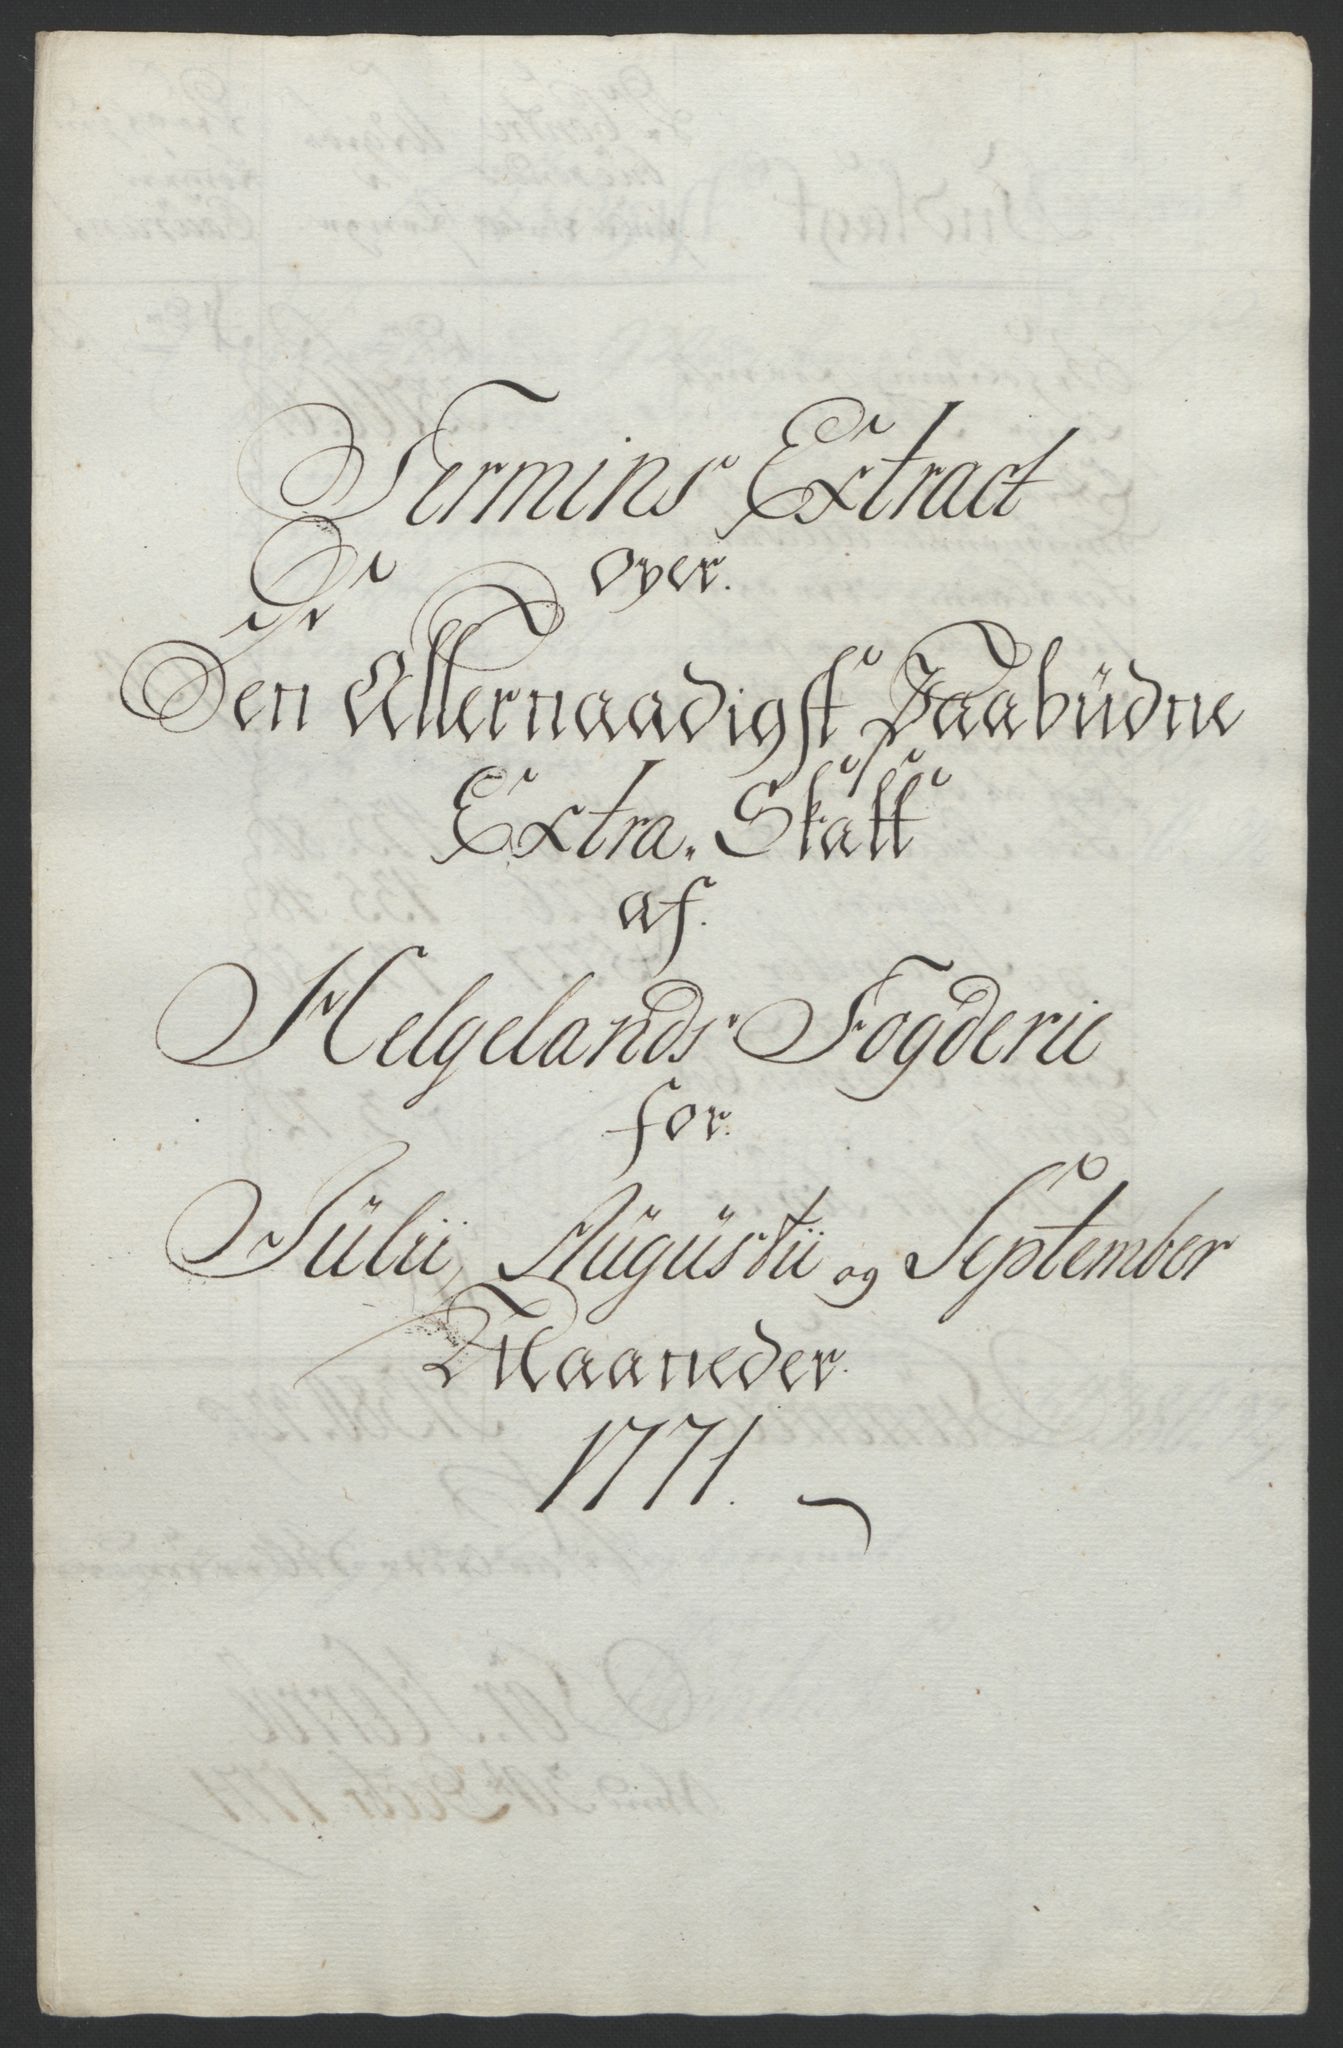 Termins Extract
over.
Den Allernaadigst Paabüdne
Extra. Skatt
af.
Helgelands Fogderie
for.
Julii, Augüstii og September
Maaneder.
1771.